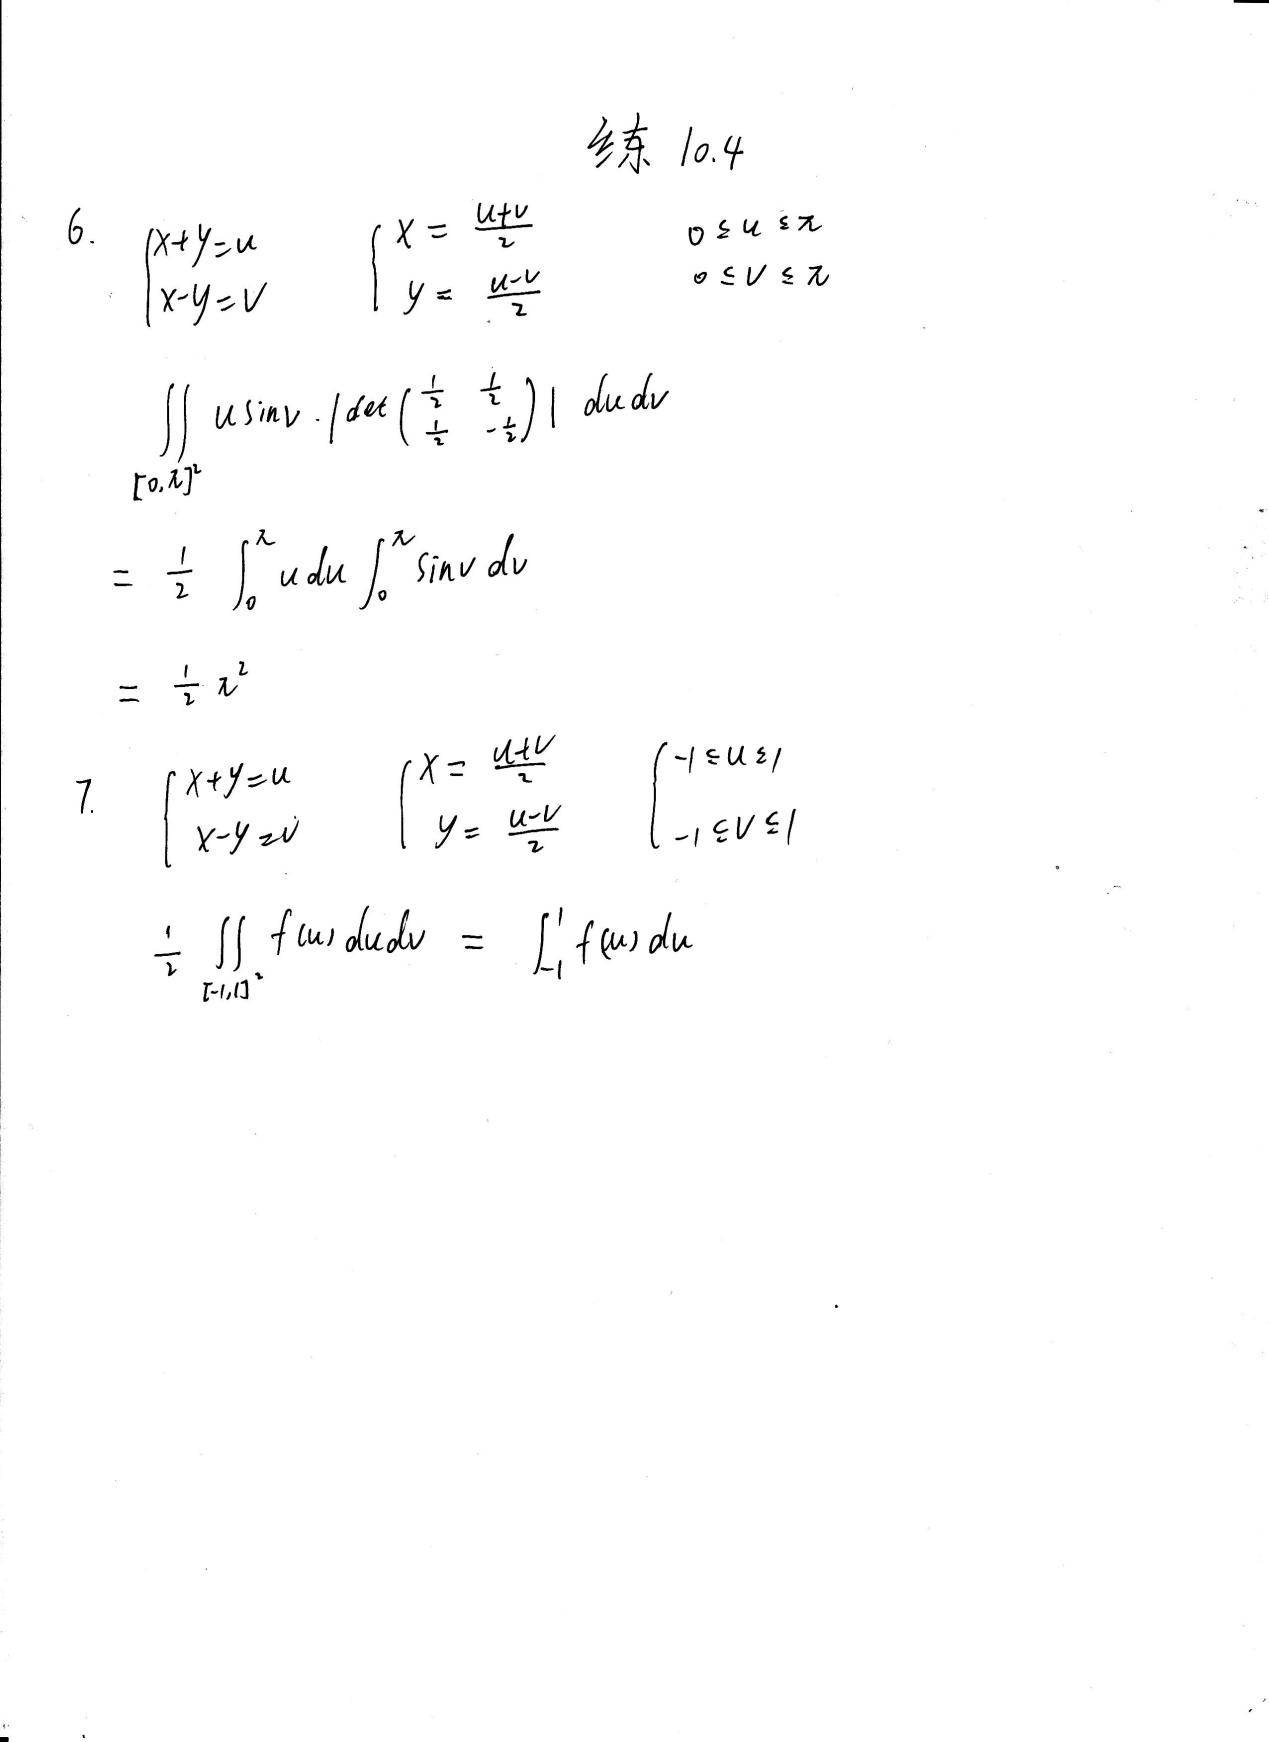 练 10.4
6. { x+y=u x-y=v { x = (u+v)/2 y = (u-v)/2 0≤u≤π 0≤v≤π
∬_{[0,π]²} u sinv · |det(1/2 1/2 1/2 -1/2)| du dv
= 1/2 ∫_0^π u du ∫_0^π sinv dv
= 1/2 π²
7. { x+y=u x-y=v { x = (u+v)/2 y = (u-v)/2 { -1≤u≤1 -1≤v≤1
1/2 ∬_{[-1,1]²} f(u) du dv = ∫_{-1}^1 f(u) du